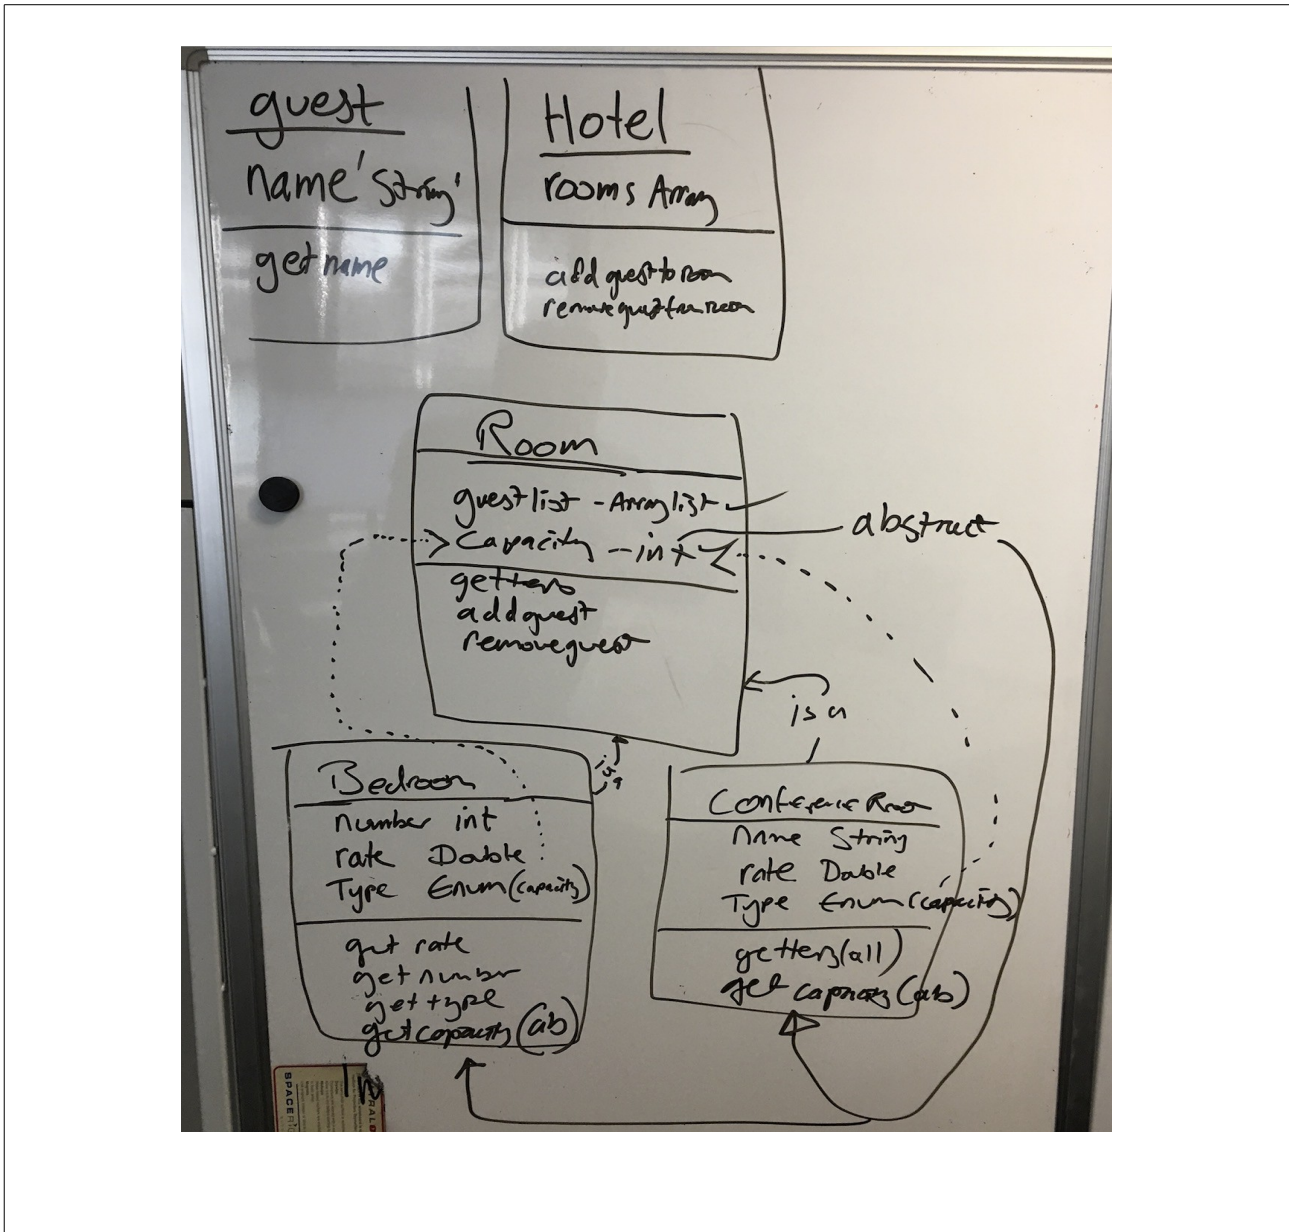 guest
name 'String'
get name
Hotel
rooms Array
add guest to room
remove guest from room
Room
guest list - Array list
Capacity - int
abstract
getters
add guest
remove guest
is a
is a
Bedroom
number int
rate Double
Type Enum (capacity)
get rate
get number
get type
get capacity (ab)
Conference Room
Name String
rate Double
Type Enum (capacity)
getters (all)
get capacity (ab)
SPACE